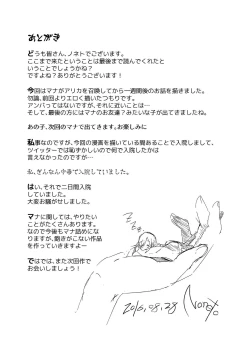 あとがき
どうも皆さん、ノネトでございます。
ここまで来たということは最後まで読んでくれたと
いうことでしょうかね？
ですよね？ありがとうございます！
今回はマナがアリカを召喚してから一週間後のお話を描きました。
勿論、前回よりエロく描いたつもりです。
アンパってはないですが、それに近いことは…
そして、最後の方にはマナのお友達？みたいな子が出てきましたね。
あの子、次回のマナで出てきます。お楽しみに
私事なのですが、今回の漫画を描いている間あることで入院しまして、
ツイッターでは恥ずかしいので何で入院したかは
言えなかったのですが…
私、ぎんなん中毒で入院していました。
はい、それで二日間入院
していました。
大変お騒がせしました。
マナに関しては、やりたい
ことがたくさんあります。
なので今後もマナ詰めにな
りますが、飽きがこない作品
を作っていきますよー
ではでは、また次回作で
お会いしましょう！
2016.08.28